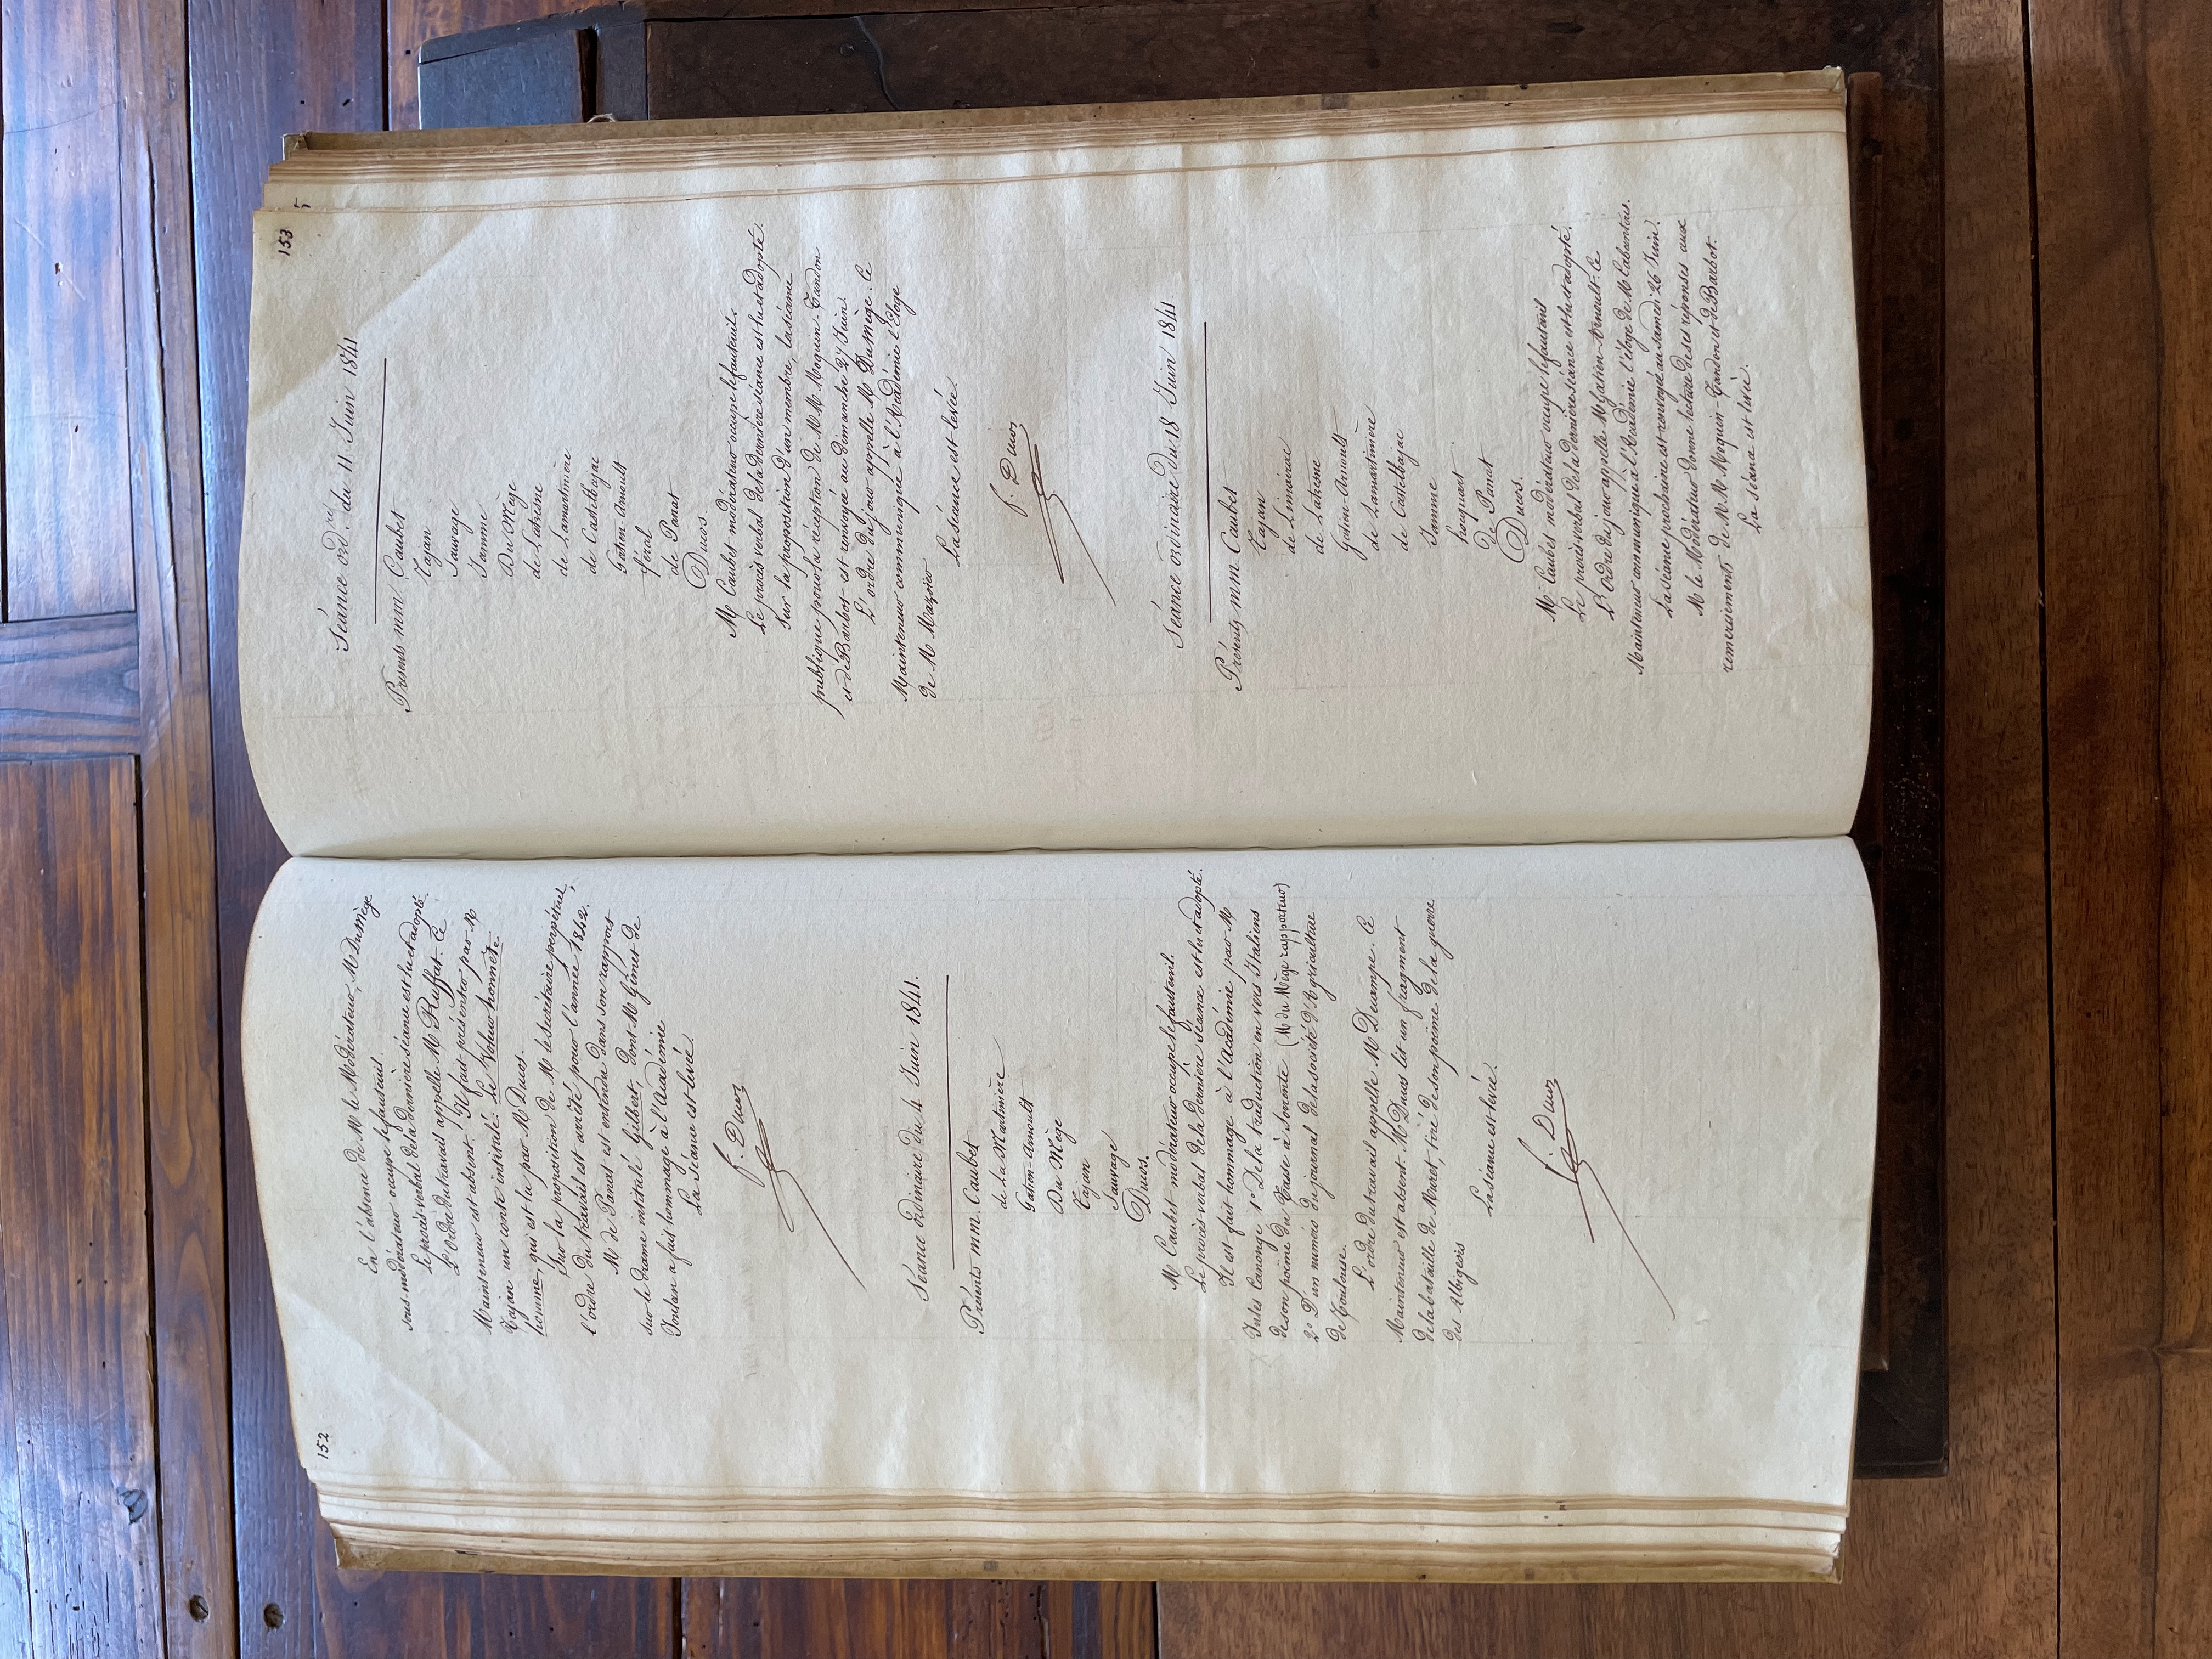 152
En l'absence de M le Modérateur, M Dumège
sous-modérateur occupe le fauteuil.
Le procès-verbal de la dernière séance est lu et adopté.
L'Ordre du travail appelle M Ruffat. Ce
Mainteneur est absent. Il fait présenter par M
Tajan un conte intitulé: Le Voleur honnête
homme, qui est lu par M Ducos.
Sur la proposition de M le Secrétaire perpétuel,
l'ordre du travail est arrêté pour l'année 1842.
M de Panat est entendu dans son rapport
sur le drame intitulé Gilbert, dont M Ginet de
Joulan a fait hommage à l'Académie
La Séance est levée.
f. Ducos
Séance Ordinaire du 4 Juin 1841.
Présents mm. Caubet
de la Martinière
Gatien-Arnoult
Du Mège
Tajan
Sauvage
Ducos.
M Caubet modérateur occupe le fauteuil.
Le procès-verbal de la dernière Séance est lu et adopté.
Il est fait hommage à l'Académie par M
Jules Canonge 1° De la traduction en vers Italiens
de son poème du Tasse à Sorrente (M du Mège rapporteur)
2° D'un numéro du journal de la société d'Agriculture
de Toulouse.
L'ordre du travail appelle M Decampe. Ce
Mainteneur est absent. M Ducos lit un fragment
de la bataille de Muret, tiré de son poème de la guerre
des Albigeois
La séance est levée.
f. Ducos
153
Séance ord.re du 11 Juin 1841
Présents mm Caubet
Tajan
Sauvage
Jamme
Du Mège
de Latresne
de Lamartinière
de Castelbajac
Gatien Arnoult
féral
de Panat
Ducos.
M Caubet modérateur occupe le fauteuil.
Le procès verbal de la dernière séance est lu et adopté.
Sur la proposition d'un membre, la séance
publique pour la réception de MM Moquin-Tandon
et de Barbot est renvoyée au dimanche 27 Juin.
L'ordre du jour appelle M Du Mège. Ce
Mainteneur communique à l'Académie l'Eloge
de M Mazoier
La Séance est levée
f. Ducos
Séance ordinaire du 18 Juin 1841
Présents mm Caubet
Tajan
de Limairac
de Latresne
Gatien-Arnoult
de Lamartinière
de Castelbajac
Jamme
hocquart
De Panat
Ducos.
M. Caubet modérateur occupe le fauteuil
Le procès verbal de la dernière séance est lu et adopté.
L'Ordre du jour appelle M Gatien-Arnoult. Ce
Mainteneur communique à l'Académie l'éloge de M Cabantous.
La séance prochaine est renvoyée au samedi 26 Juin.
M le Modérateur donne lecture de ses réponses aux
remerciements de MM Moquin-Tandon et de Barbot.
La séance est levée.